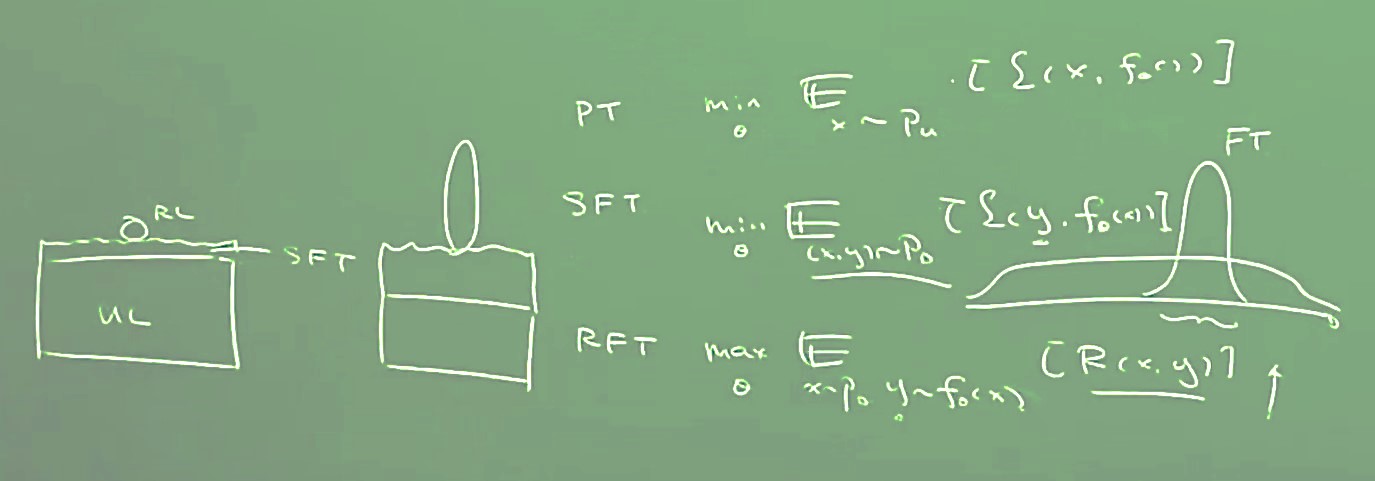 RL
SFT
UL
PT min θ 𝔼 x ~ Pu [ℒ(x, fθ(·))]
FT
SFT min θ 𝔼 (x,y)~PD [ℒ(y, fθ(x))]
RFT max θ 𝔼 x~PD y~fθ(x) [R(x,y)] ↑